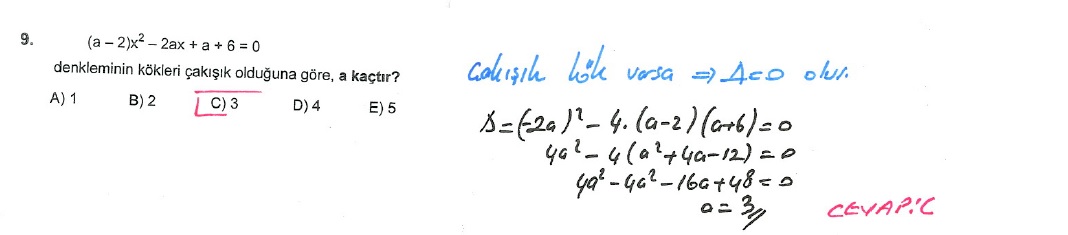 9. (a – 2)x² – 2ax + a + 6 = 0
denkleminin kökleri çakışık olduğuna göre, a kaçtır?
A) 1 B) 2 C) 3 D) 4 E) 5
Çakışık kök varsa ⇒ Δ=0 olur.
Δ=(-2a)² - 4.(a-2)(a+6)=0
4a² - 4(a²+4a-12)=0
4a² - 4a² - 16a + 48 = 0
a = 3//
CEVAP:C